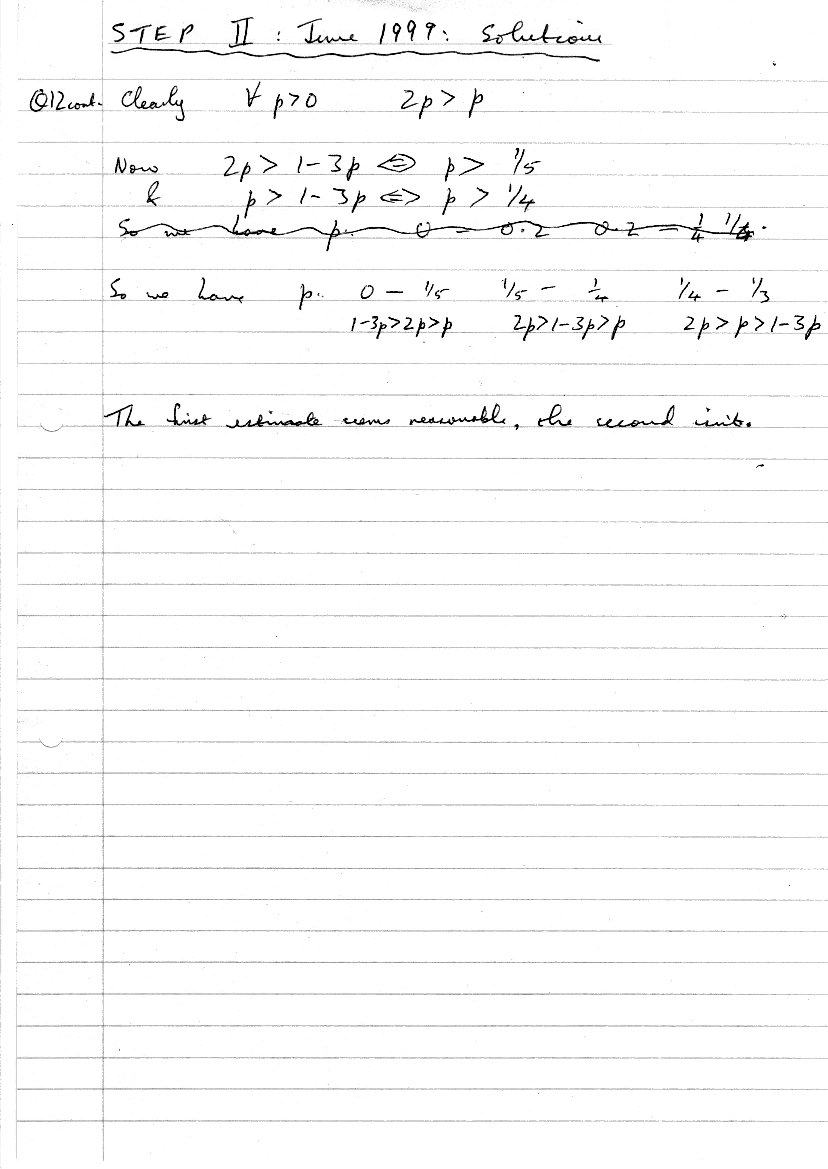 STEP II : June 1999: Solutions
Q12 cont. Clearly ∀ p>0 2p > p
Now 2p > 1-3p ⇔ p > 1/5
& p > 1-3p ⇔ p > 1/4
So we have p. 0 - 0.2 0.2 - 1/4 1/4.
So we have p. 0 - 1/5 1/5 - 1/4 1/4 - 1/3
1-3p>2p>p 2p>1-3p>p 2p>p>1-3p
The first estimate seems reasonable, the second isn't.